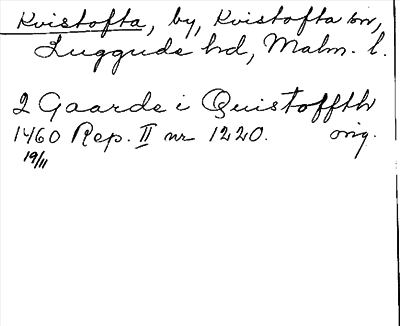 Kvistofta, by, Kvistofta sn,
Luggude hd, Malm. l.
2 Gaarde i Quistoffth
1460 Rep. II nr 1220. orig.
19/11